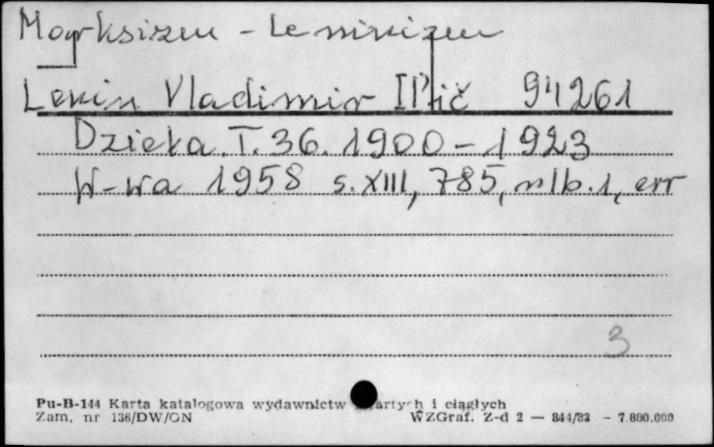 Marksizm - Leninizm
Lenin Vladimir Il'ič 94261
Dzieła. T. 36. 1900 - 1923
W-wa 1958 s. XIII, 785, nlb. 1, err
3
Pu-B-144 Karta katalogowa wydawnictw artych i ciągłych
Zam. nr 136/DW/ON WZGraf. Z-d 2 — 844/83 - 7.800.000